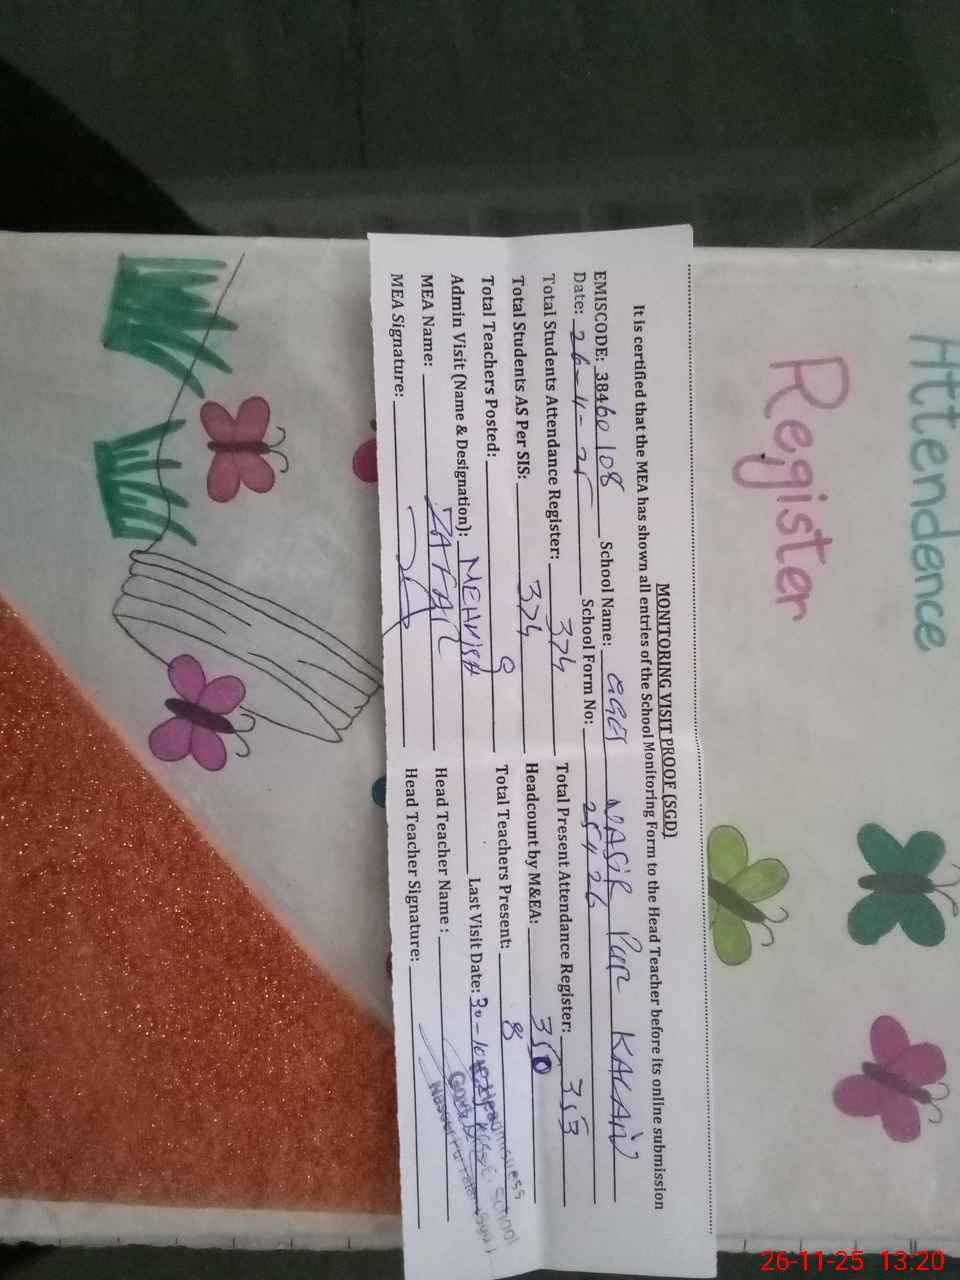 Attendence
Register
MONITORING VISIT PROOF (SGD)
It is certified that the MEA has shown all entries of the School Monitoring Form to the Head Teacher before its online submission
EMISCODE: 38460108 School Name: GGES NASIR PUR KALAN
Date: 26-11-25 School Form No: 25426
Total Students Attendance Register: 374 Total Present Attendance Register: 353
Total Students AS Per SIS: 374 Headcount by M&EA: 350
Total Teachers Posted: 9 Total Teachers Present: 8
Admin Visit (Name & Designation): MEHVISH Last Visit Date: 30-10-25
MEA Name: ZAFAR Head Teacher Name :
MEA Signature: Head Teacher Signature:
Headmistress
School
26-11-25 13:20